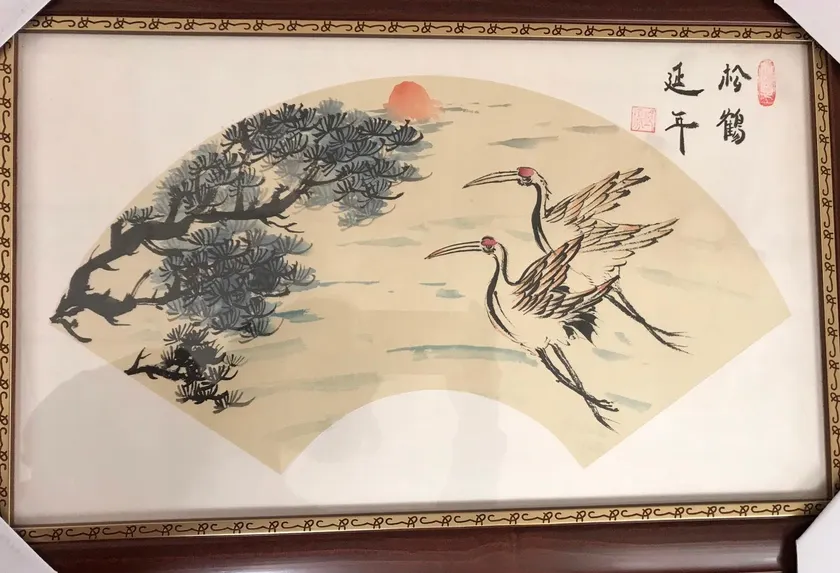 松鶴
延年